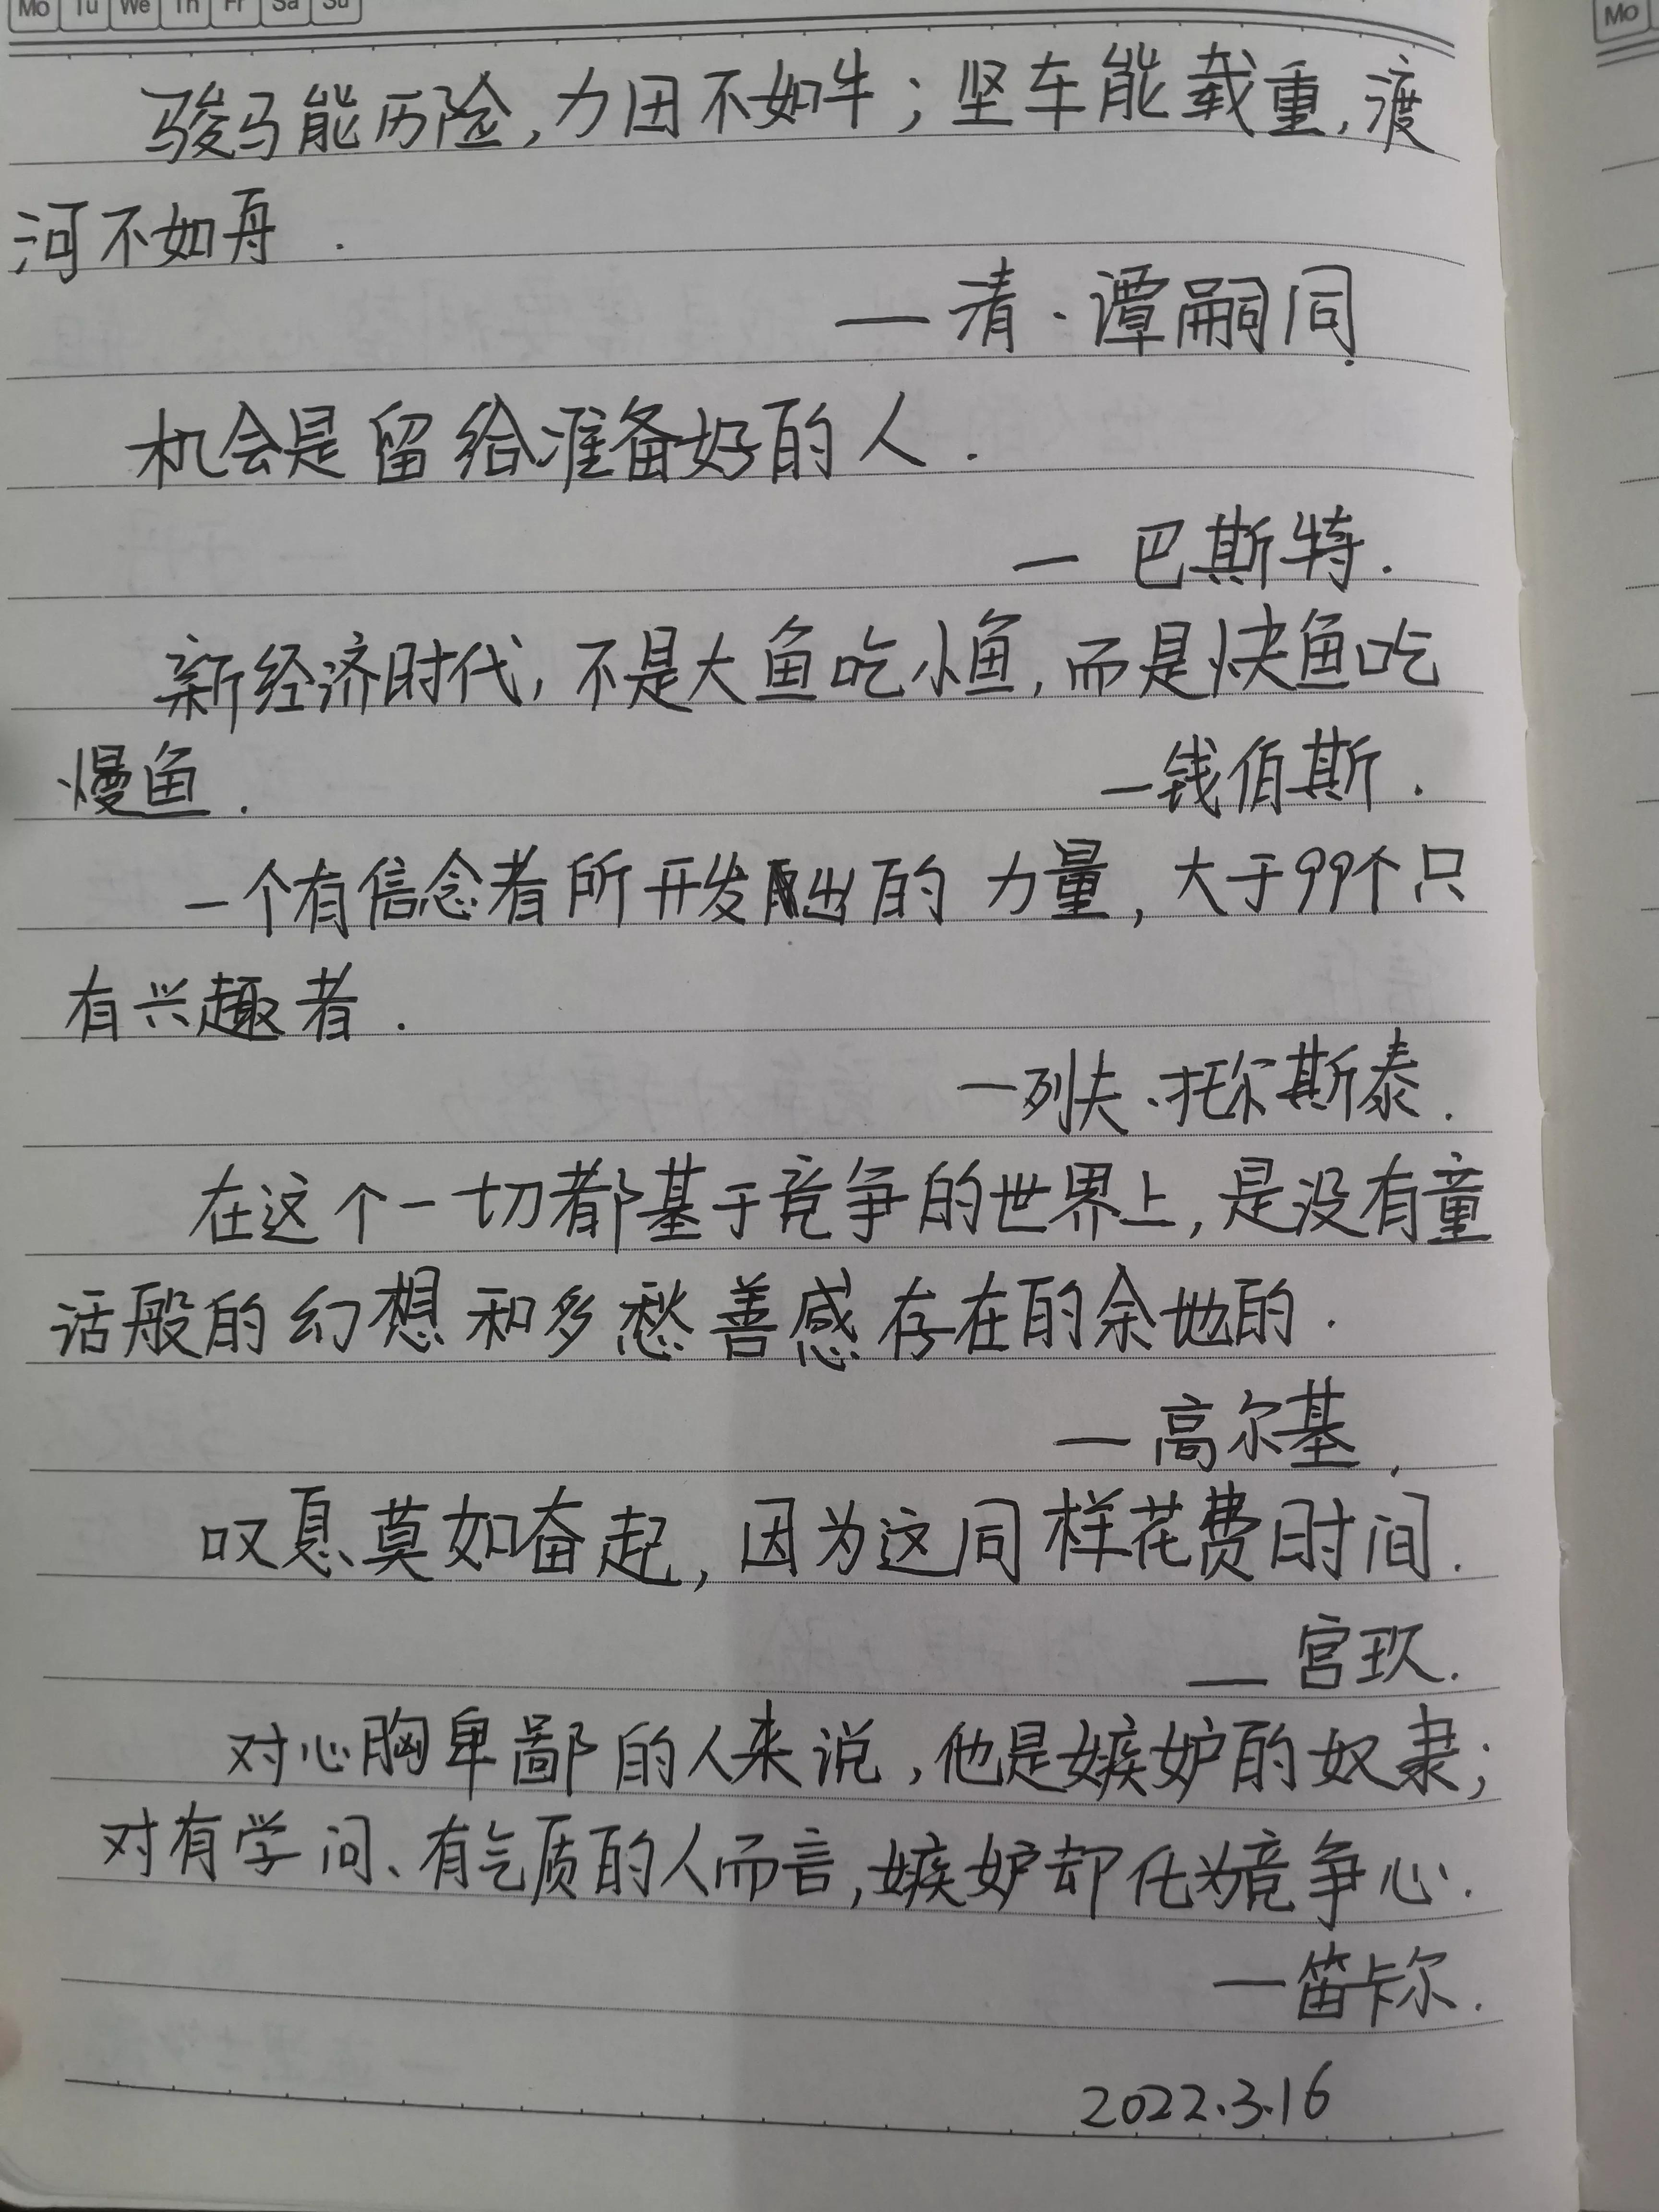 Mo Tu We Th Fr Sa Su
Mo
骏马能历险,力田不如牛;坚车能载重,渡
河不如舟.
—清·谭嗣同.
机会是留给准备好的人.
— 巴斯特.
新经济时代,不是大鱼吃小鱼,而是快鱼吃
慢鱼.
—钱伯斯.
一个有信念者所开发出的力量,大于99个只
有兴趣者.
—列夫·托尔斯泰.
在这个一切都基于竞争的世界上,是没有童
话般的幻想和多愁善感存在的余地的.
—高尔基.
叹息莫如奋起,因为这同样花费时间.
— 宫玖.
对心胸卑鄙的人来说,他是嫉妒的奴隶;
对有学问、有气质的人而言,嫉妒却化为竞争心.
—笛卡尔.
2022.3.16